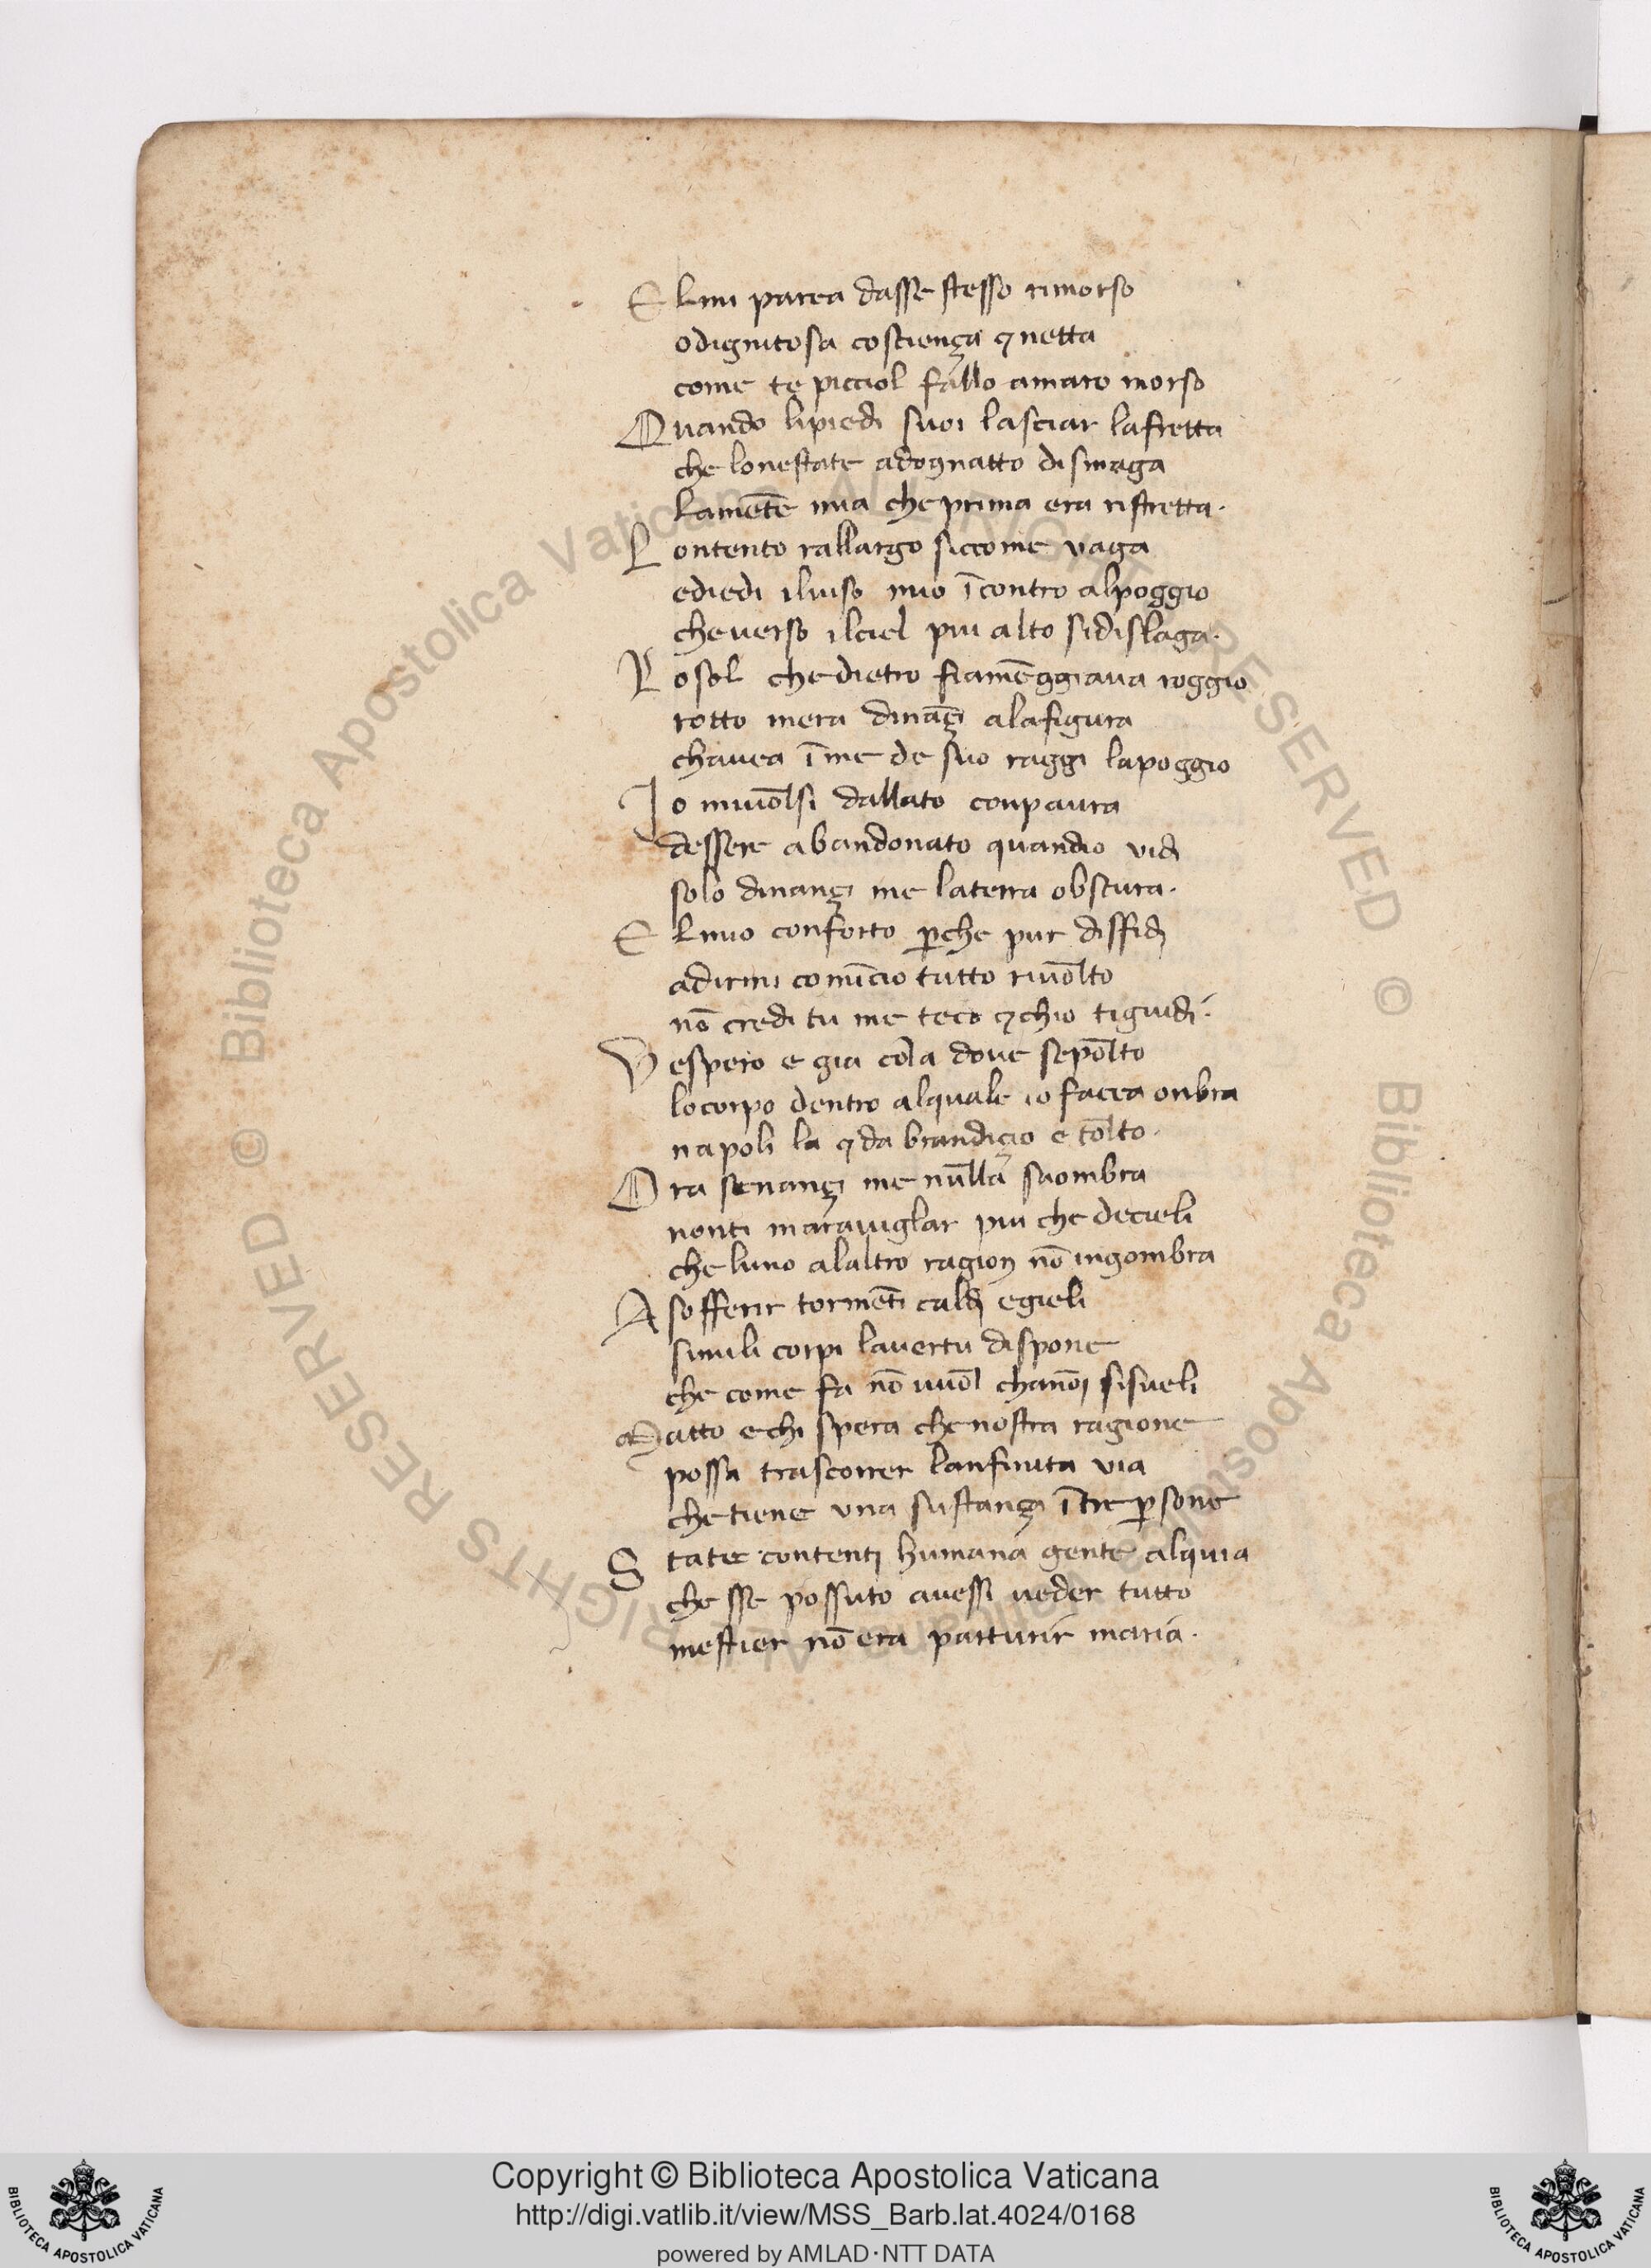 E lmi parea dasse stesso rimorso
odignitosa coscienza ⁊ netta
come te picciol fallo amaro morso
Quando lipiedi suoi lasciar lafretta
che lonestate adognatto dismaga
lamēte mia che prima era ristretta·
L ontento rallargo siccome vaga
ediedi iluiso mio ī contro alpoggio
cheuerso ilciel piu alto sidislaga·
L osol chedietro fiamēggiaua roggio
rotto mera dināzi alafigura
chauea ī me de suo raggi lapoggio
Io miuolsi dallato conpaura
dessere abandonato quandio vidi
solo dinanzi me laterra obscura·
E lmio conforto ꝑche pur diffidi
adirmi comīcio tutto riuolto
nō credi tu me teco ⁊chio tiguidi·
Vespero e gia cola doue sepolto
locorpo dentro alquale io facea onbra
napoli la ⁊da brandizio e tolto·
Ora senanzi me nulla saombra
nonti marauiglar piu che decieli
che luno alaltro ragion nō ingombra
A sofferir tormēti caldi egieli
simili corpi lauertu dispone
che come fa nō vuol chanoi sisueli
Matto echi spera chenostra ragione
possa trascorrer lanfinita via
chetiene vna sustanza ī tre ꝑsone
S tate contenti humana gente alquia
che sse possuto auessi ueder tutto
mestier nō era parturir maria·
© Biblioteca Apostolica Vaticana ALL RIGHTS RESERVED © Biblioteca Apostolica Vaticana ALL RIGHTS RESERVED
Copyright © Biblioteca Apostolica Vaticana
http://digi.vatlib.it/view/MSS_Barb.lat.4024/0168
powered by AMLAD·NTT DATA
BIBLIOTECA APOSTOLICA VATICANA
BIBLIOTECA APOSTOLICA VATICANA